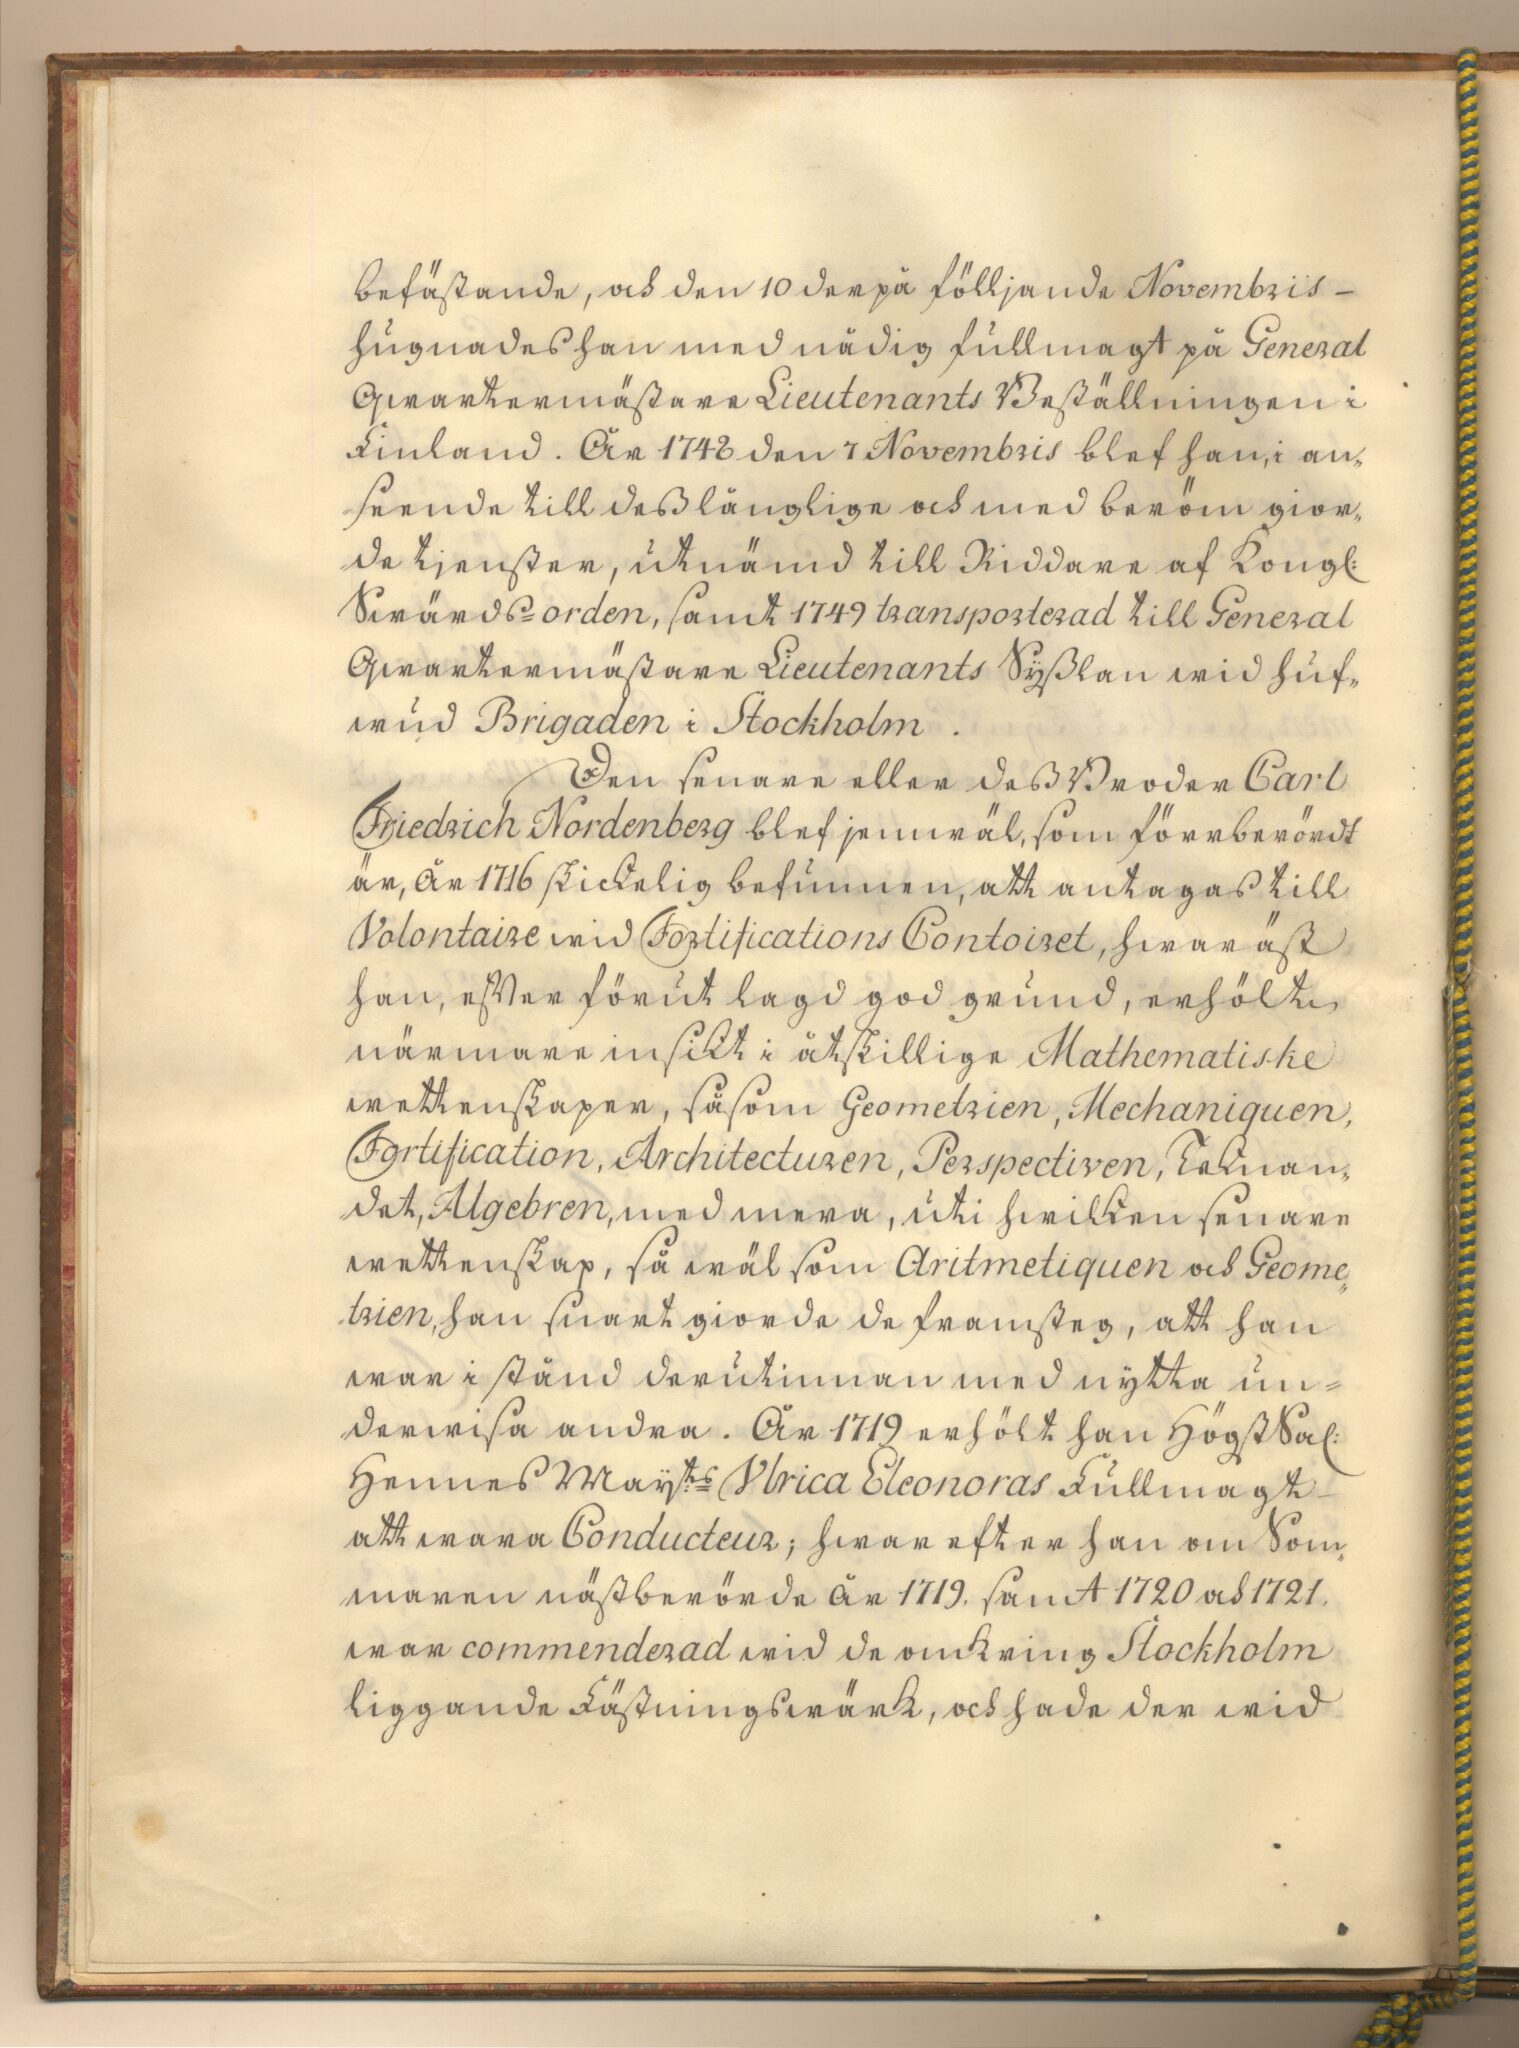 befästande, och den 10 derpå följjande Novembris –
hugnades han med nådig fullmagt på General
Qwartermästare Lieutenants Beställningen i
Finland. År 1748 den 7 Novembris blef han, i an-
seende till deß långlige och med beröm gior-
de tjenster, utnämd till Riddare af Kongl:
Swärds=orden, samt 1749 transporterad till General
Qwartermästare Lieutenants Syßlan wid huf-
wud Brigaden i Stockholm.
Den senare eller deß Broder Carl
Friedrich Nordenberg blef jemwäl, som förrberördt
är, År 1716 skickelig befunnen, att antagas till
Volontaire wid Fortifications Contoiret, hwaräst
han, efter förut lagd god grund, erhölte
närmare insikt i åtskillige Mathematiske
wettenskaper, såsom Geometrien, Mechaniquen,
Fortification, Architecturen, Perspectiven, Teknan-
det, Algebren, med mera, uti hwilken senare
wettenskap, så wäl som Aritmetiquen och Geome-
trien, han snart giorde de framsteg, att han
war i stånd derutinnan med nytta un=
derwisa andra. År 1719 erhölt han Högst Sal:
Hennes Mayts Ulrica Eleonoras Fullmagt
att wara Conducteur; hwarefter han om Som-
maren nästberörde år 1719. samt 1720 och 1721.
war commenderad wid de omkring Stockholm
liggande Fästningswärk, och hade der wid